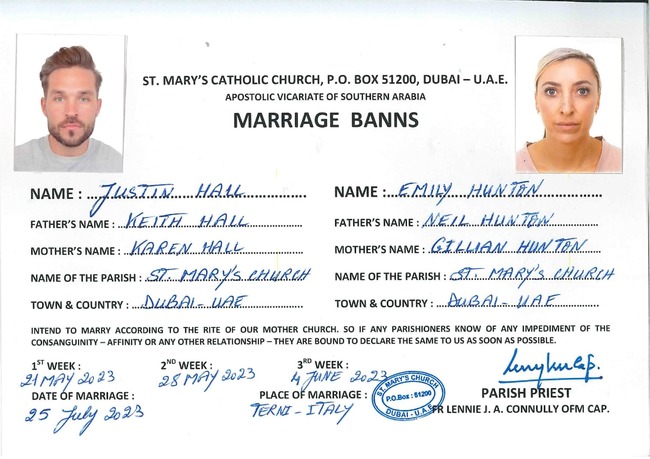 ST. MARY'S CATHOLIC CHURCH, P.O. BOX 51200, DUBAI – U.A.E.
APOSTOLIC VICARIATE OF SOUTHERN ARABIA
MARRIAGE BANNS
NAME : JUSTIN HALL
FATHER'S NAME : KEITH HALL
MOTHER'S NAME : KAREN HALL
NAME OF THE PARISH : ST. MARY'S CHURCH
TOWN & COUNTRY : DUBAI - UAE
NAME : EMILY HUNTON
FATHER'S NAME : NEIL HUNTON
MOTHER'S NAME : GILLIAN HUNTON
NAME OF THE PARISH : ST. MARY'S CHURCH
TOWN & COUNTRY : DUBAI - UAE
INTEND TO MARRY ACCORDING TO THE RITE OF OUR MOTHER CHURCH. SO IF ANY PARISHIONERS KNOW OF ANY IMPEDIMENT OF THE
CONSANGUINITY – AFFINITY OR ANY OTHER RELATIONSHIP – THEY ARE BOUND TO DECLARE THE SAME TO US AS SOON AS POSSIBLE.
1ST WEEK : 2ND WEEK : 3RD WEEK :
21 MAY 2023 28 MAY 2023 4 JUNE 2023
DATE OF MARRIAGE : PLACE OF MARRIAGE :
25 July 2023 TERNI - ITALY
ST. MARY'S CHURCH
P.O.Box : 51200
DUBAI - U.A.E
PARISH PRIEST
FR LENNIE J. A. CONNULLY OFM CAP.